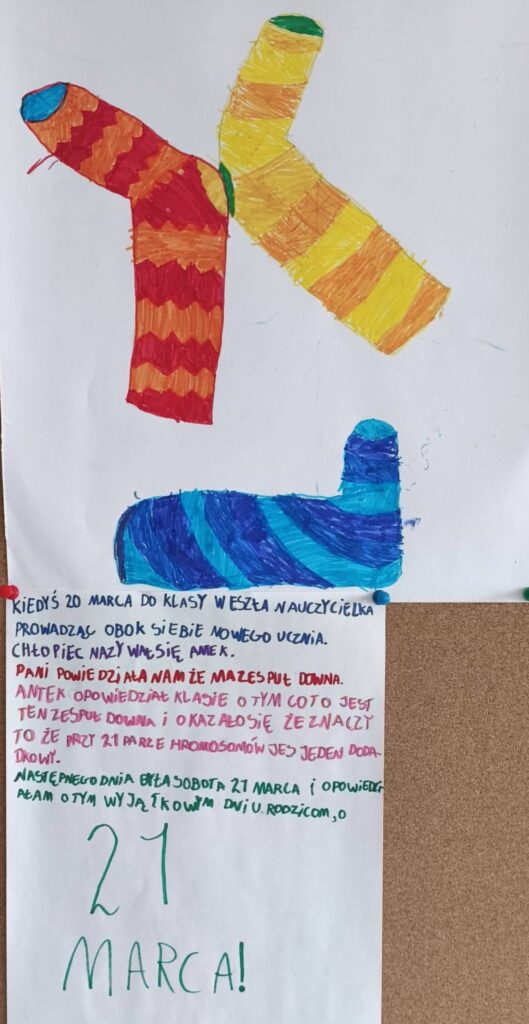 KIEDYŚ 20 MARCA DO KLASY WESZŁA NAUCZYCIELKA
PROWADZĄC OBOK SIEBIE NOWEGO UCZNIA.
CHŁOPIEC NAZYWAŁ SIĘ ANEK.
PANI POWIEDZIAŁA NAM ŻE MA ZESPUŁ DOWNA.
ANTEK OPOWIEDZIAŁ KLASIE O TYM CO TO JEST
TEN ZESPUŁ DOWNA I OKAZAŁO SIĘ ŻE ZNACZY
TO ŻE PRZY 21 PARZE HROMOSOMÓW JES JEDEN DODA-
DKOWY.
NASTĘPNEGO DNIA BYŁA SOBOTA 21 MARCA I OPOWIEDZI-
AŁAM O TYM WYJĄTKOWYM DNIU RODZICOM, O
21
MARCA!